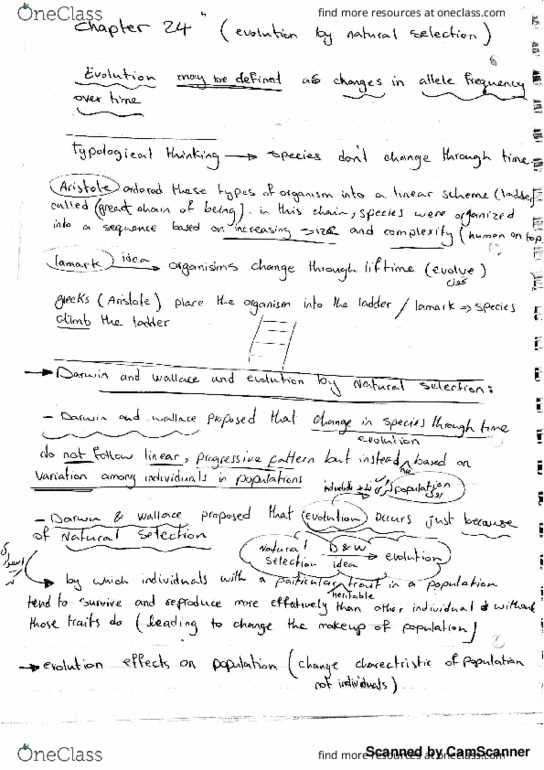 OneClass
find more resources at oneclass.com
Chapter 24 " (evolution by natural selection)
Evolution may be defined as changes in allele frequency
over time
typological thinking → species don't change through time
Aristotle ordered these types of organism into a linear scheme (ladder
called (great chain of being). in this chain, species were organized
into a sequence based on increasing size and complexity (human on top
lamark idea → organisms change through liftime (evolve)
greeks (Aristole) place the organism into the ladder / lamark ⇒ species
climb the ladder
→ Darwin and wallace and evolution by Natural selection:
- Darwin and wallace proposed that change in species through time
evolution
do not follow linear, progressive pattern but instead based on
variation among individuals in populations
population
- Darwin & wallace proposed that (evolution) occurs just because
of Natural Selection
Natural selection D & W idea → evolution
→ by which individuals with a particular trait in a population
heritable
tend to survive and reproduce more effectively than other individual & without
those traits do (leading to change the makeup of population)
→ evolution effects on population (change charectristic of population
not individuals)
OneClass
find more resources at oneclass.com
Scanned by CamScanner